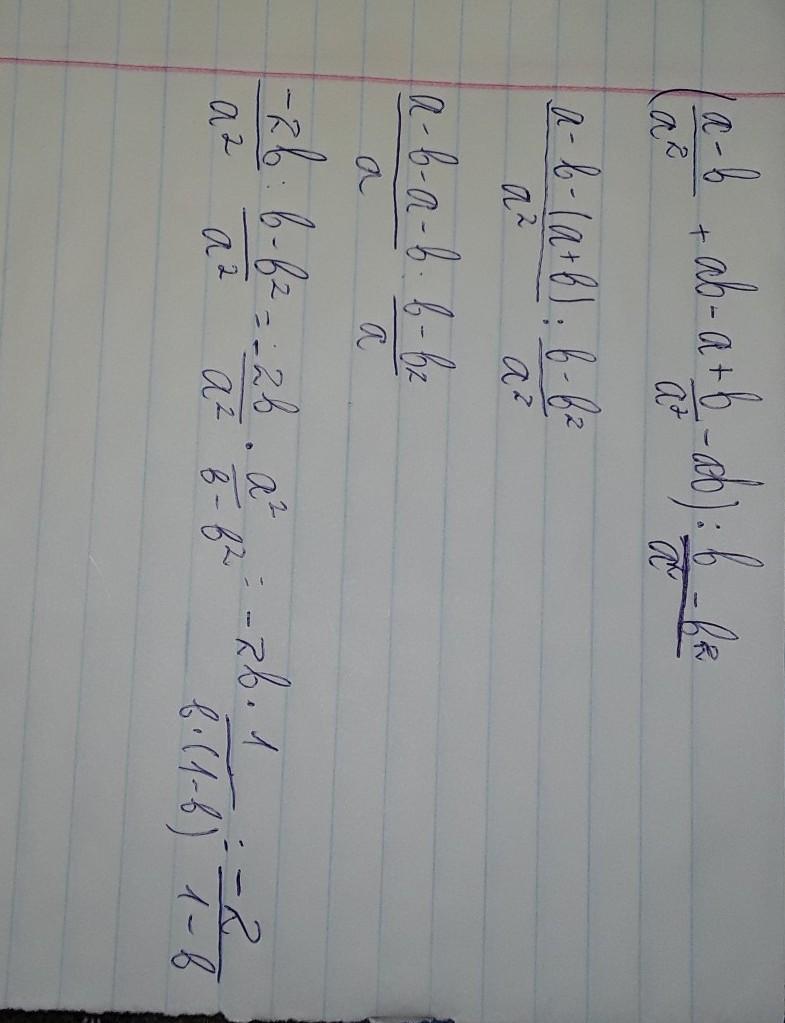 (a-b/a² + ab - a+b/a² - ab) : b-b²/a²
a-b-(a+b)/a² : b-b²/a²
a-b-a-b/a : b-b²/a
-2b/a² : b-b²/a² = -2b/a² · a²/b-b² = -2b·1/b·(1-b) = -2/1-b